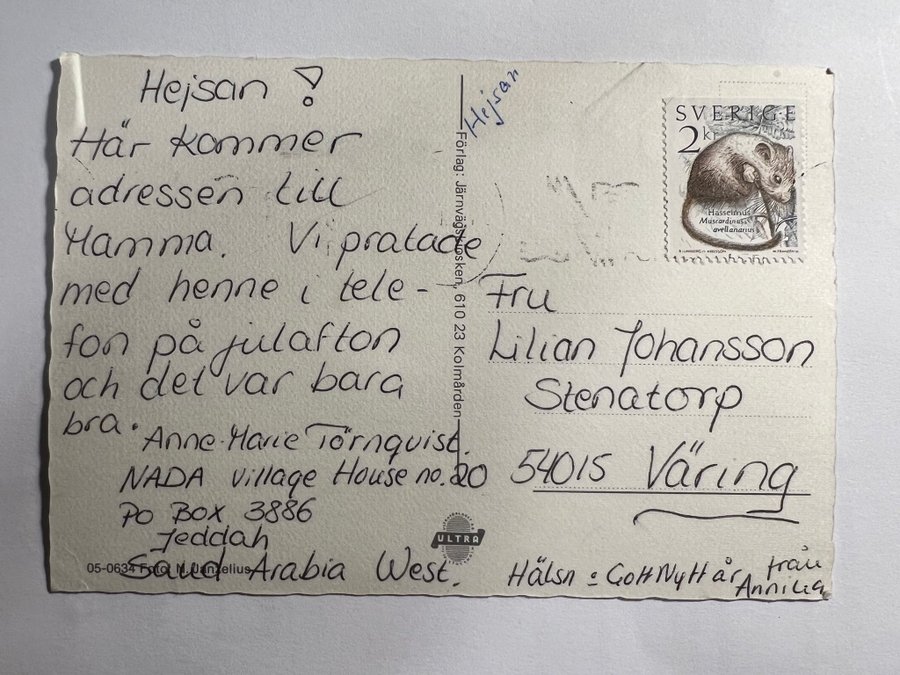 Hejsan !
Här kommer
adressen till
Mamma. Vi pratade
med henne i tele-
fon på julafton
och det var bara
bra.
Anne-Marie Törnqvist.
NADA Village House no. 20
PO Box 3886
Jeddah
Saud Arabia West.
05-0634 Foto: N. Janzelius
Förlag: Järnvägskiosken, 610 23 Kolmården
ULTRA
Hejsan
SVERIGE
2 kr
Hasselmus
Muscardinus
avellanarius
Fru
Lilian Johansson
Stenatorp
54015 Väring
Hälsn o Gott Nytt år från
Annika